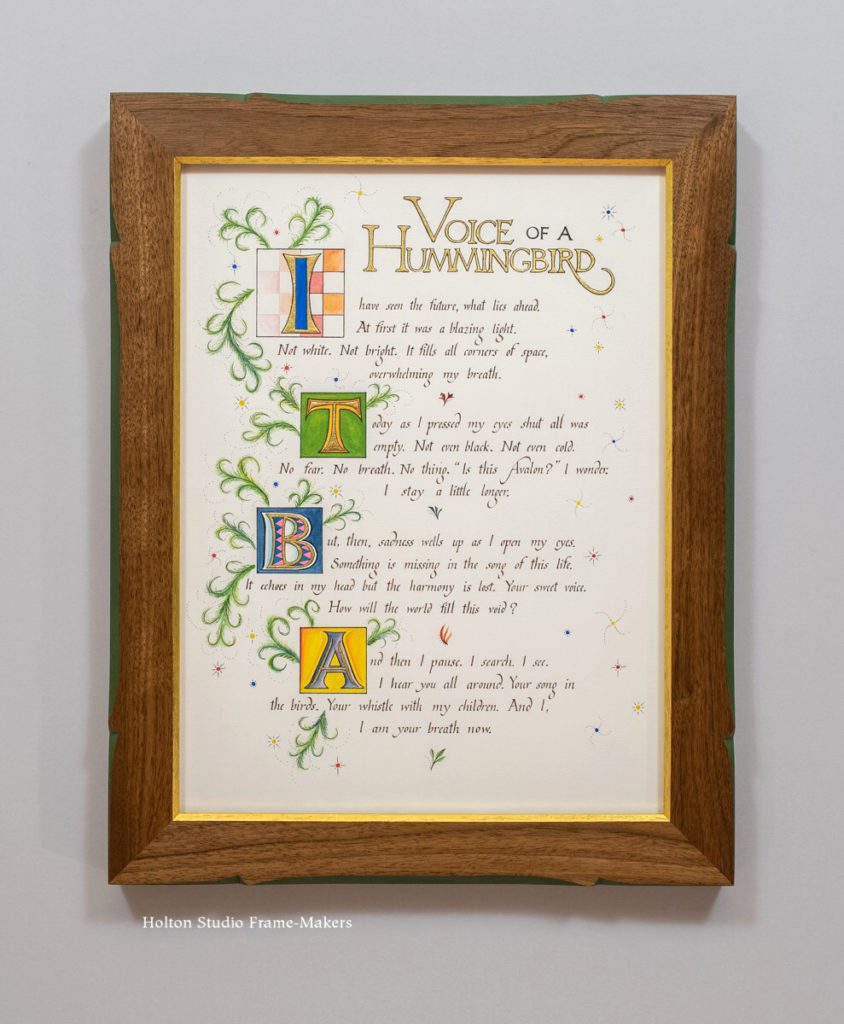 VOICE OF A
HUMMINGBIRD
I have seen the future, what lies ahead.
At first it was a blazing light.
Not white. Not bright. It fills all corners of space,
overwhelming my breath.
Today as I pressed my eyes shut all was
empty. Not even black. Not even cold.
No fear. No breath. No thing. "Is this Avalon?" I wonder.
I stay a little longer.
But, then, sadness wells up as I open my eyes.
Something is missing in the song of this life.
It echoes in my head but the harmony is lost. Your sweet voice.
How will the world fill this void?
And then I pause. I search. I see.
I hear you all around. Your song in
the birds. Your whistle with my children. And I,
I am your breath now.
Holton Studio Frame-Makers